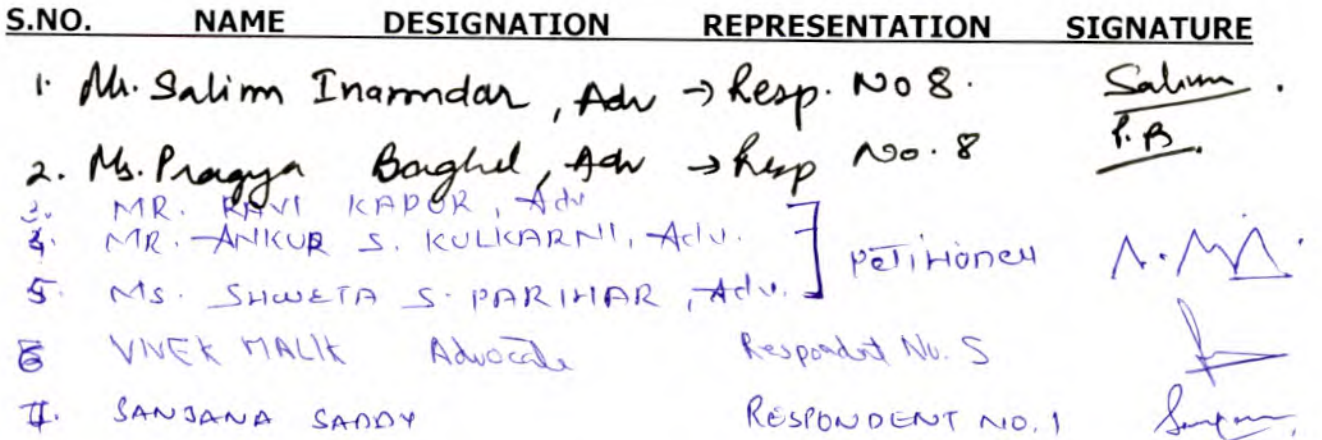 S.NO. NAME DESIGNATION REPRESENTATION SIGNATURE
1. Mr. Salim Inamdar, Adv → Resp. No 8. Salim.
2. Ms. Pragya Baghel, Adv → Resp No. 8 P.B.
3. MR. RAVI KAPUR, Adv
4. MR. ANKUR S. KULKARNI, Adv. Petitioner
5. MS. SHWETA S. PARIHAR, Adv.
6 VIVEK MALIK Advocate Respondent No. 5
7. SANJANA SADDY RESPONDENT NO. 1